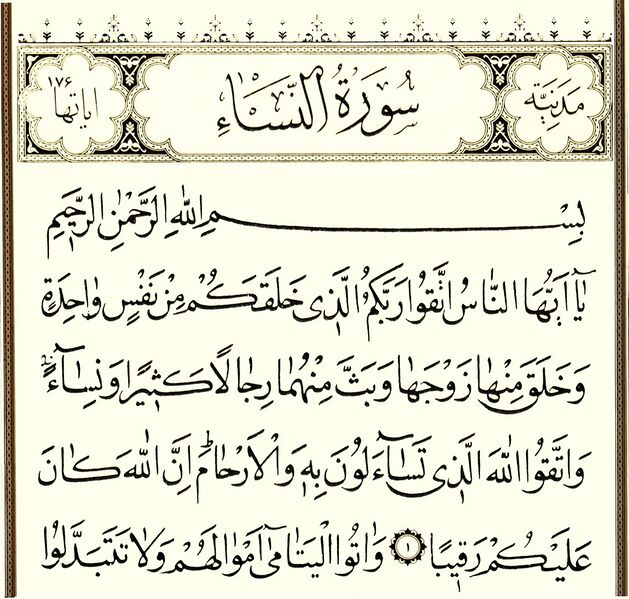 مَدَنِيَّة سُورَةُ النِّسَاءِ اياتها ١٧۶
بِسْمِ اللّٰهِ الرَّحْمٰنِ الرَّحٖيمِ
يَٓا اَيُّهَا النَّاسُ اتَّقُوا رَبَّكُمُ الَّذٖى خَلَقَكُمْ مِنْ نَفْسٍ وَاحِدَةٍ
وَخَلَقَ مِنْهَا زَوْجَهَا وَبَثَّ مِنْهُمَا رِجَالًا كَثٖيرًا وَنِسَٓاءً
وَاتَّقُوا اللّٰهَ الَّذٖى تَسَٓاءَلُونَ بِهٖ وَالْاَرْحَامَ ؕ اِنَّ اللّٰهَ كَانَ
عَلَيْكُمْ رَقٖيبًا ١ وَاٰتُوا الْيَتَامٰٓى اَمْوَالَهُمْ وَلَا تَتَبَدَّلُوا